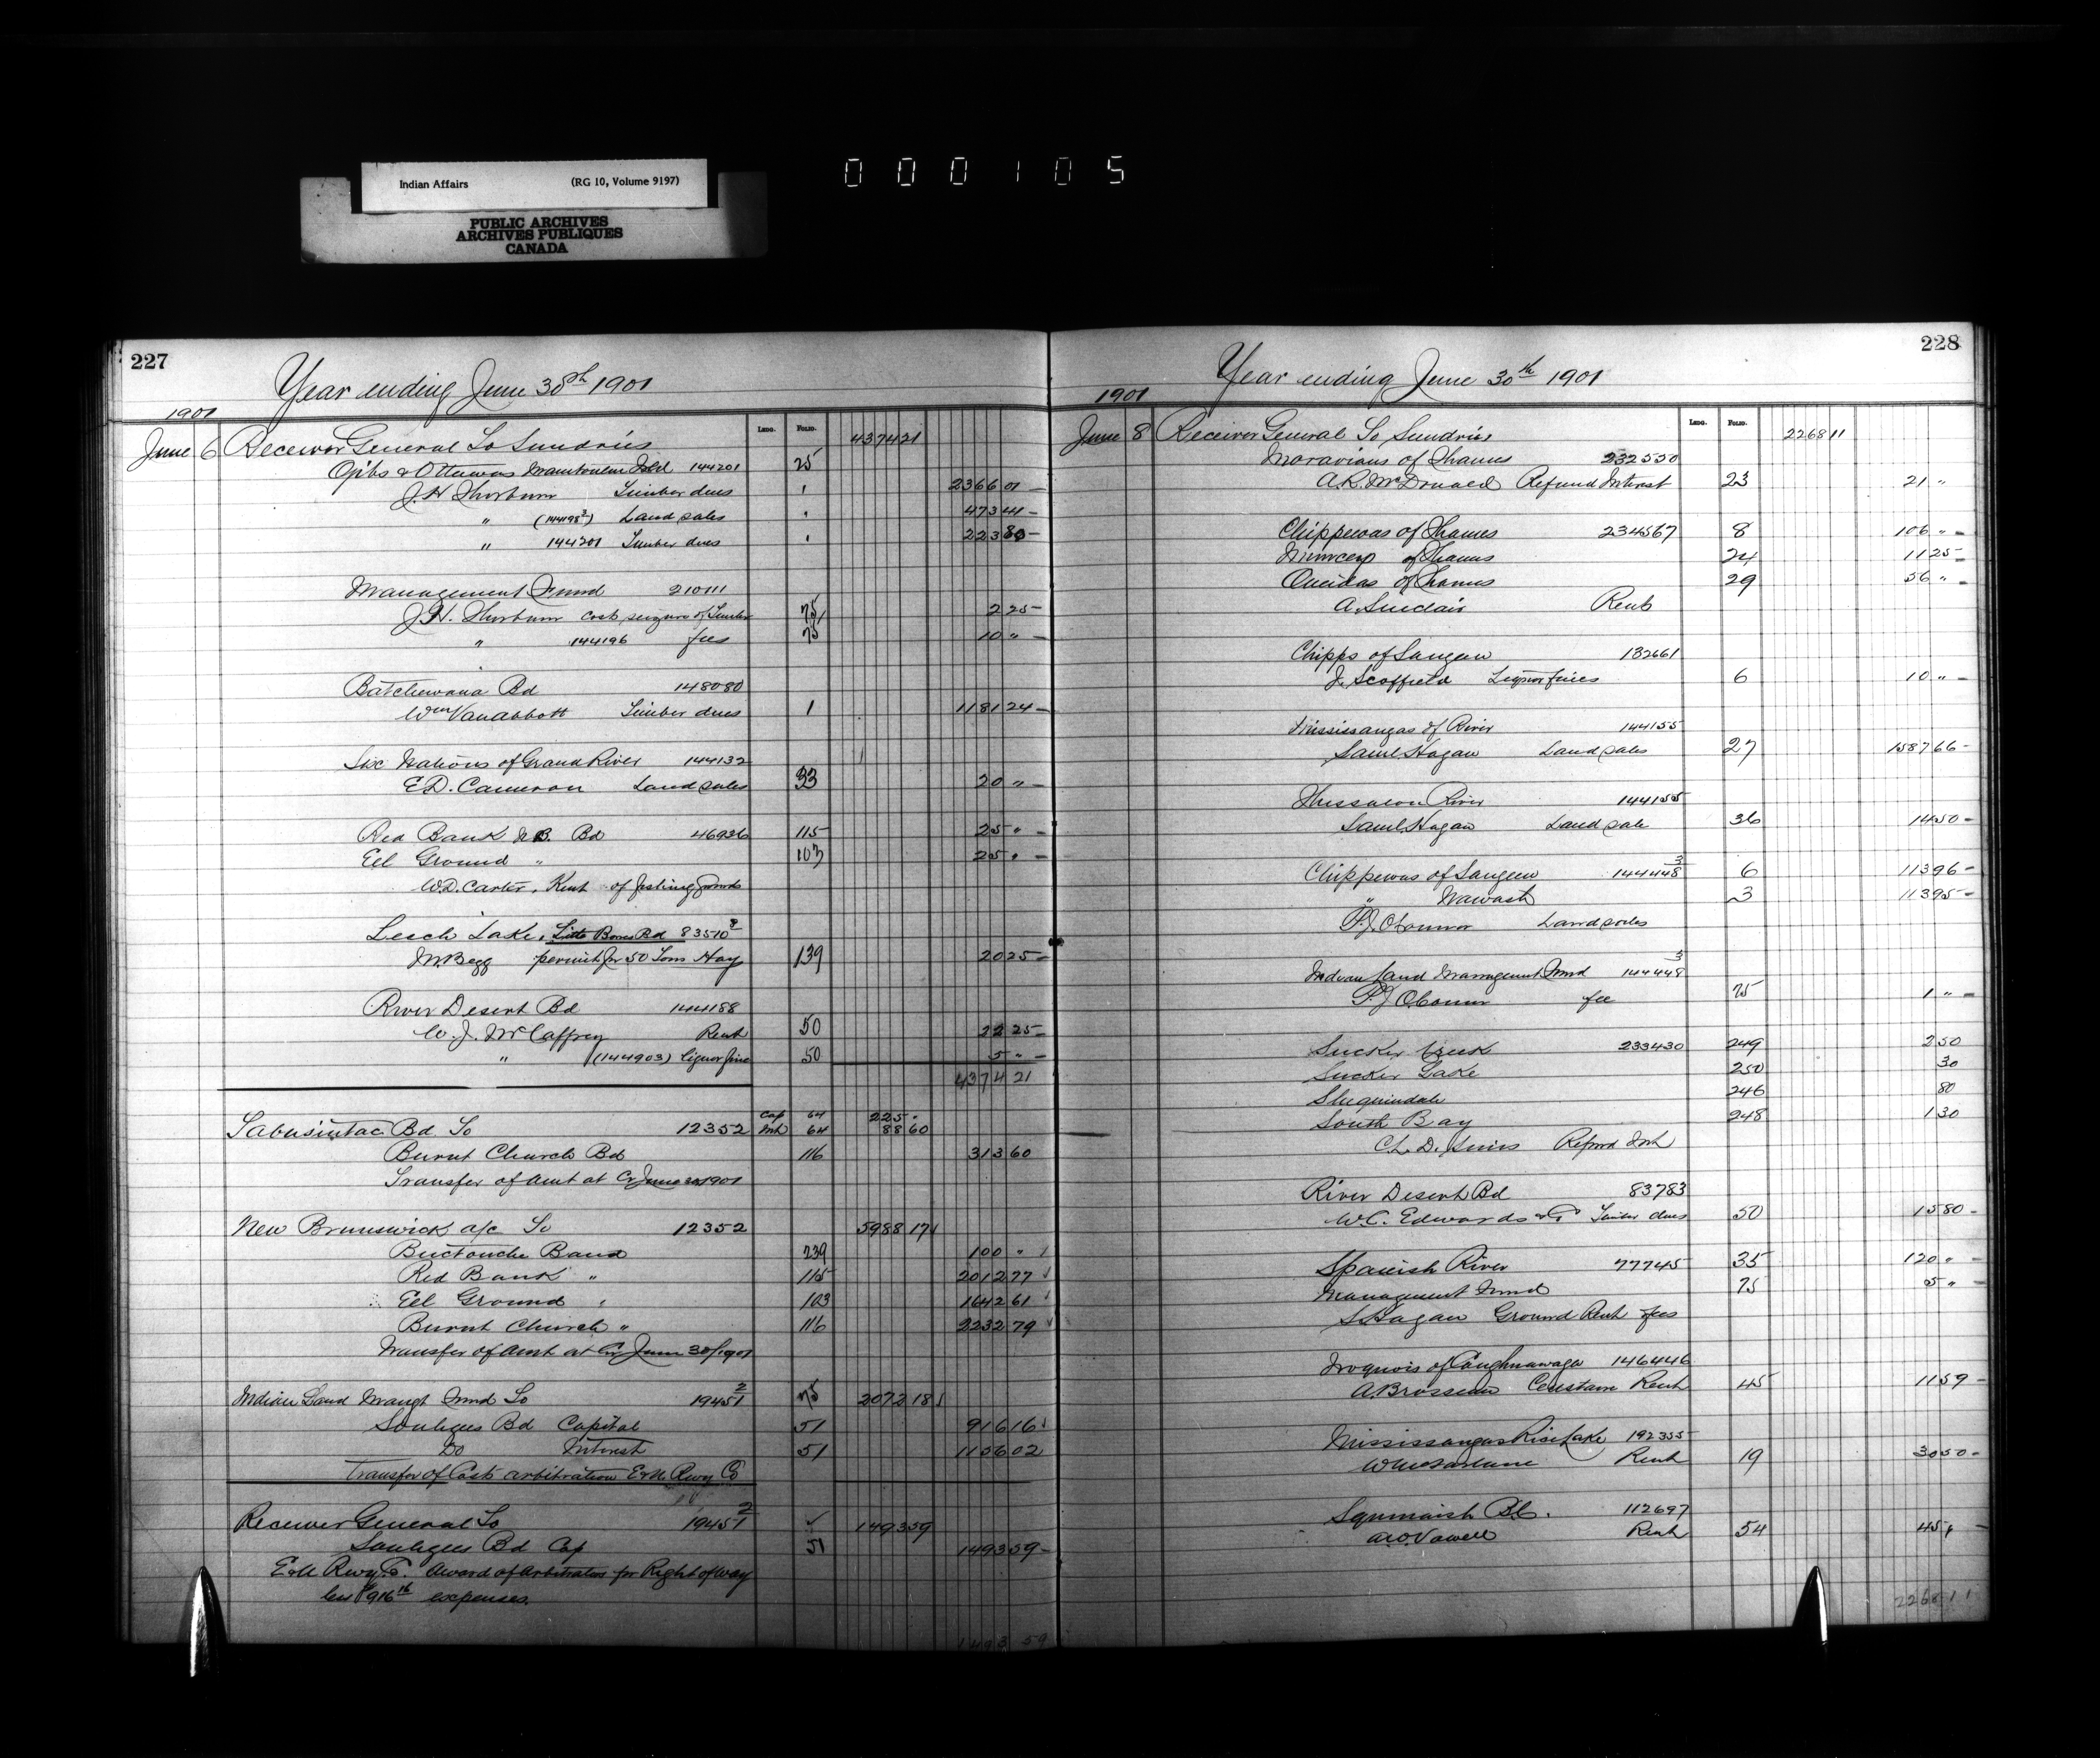 Indian Affairs (RG 10, Volume 9197)
PUBLIC ARCHIVES
ARCHIVES PUBLIQUES
CANADA
000105
227
Year ending June 30th 1901
1901
LEDG. FOLIO.
June 6 Receiver General To Sundries 4374 21
Ojibs & Ottawas Manitoulin Isld 144201 25
J.H. Thorburn Timber dues " 2366 01
" (144198³) Land sales " 473 41
" 144201 Timber dues " 223 80
Management Fund 210111
J.H. Thorburn cost seizure of Timber 75 2 25
" 144196 fees 75 10 "
Batchewana Bd 148080
Wm Van Abbott Timber dues 1 1181 24
Six Nations of Grand River 144132
E.D. Cameron Land sales 33 20 "
Red Bank N.B. Bd 46926 115 25 "
Eel Ground " 103 25 "
W.D. Carter, Rent of fishing
Leech Lake, Little Bones Bd 83510
M. Begg permit for 50 Tons Hay 139 20 25
River Desert Bd 144188
W.J. McCaffrey Rent 50 22 25
" (144903) Liquor fine 50 5 "
4374 21
Tabusintac Bd To 12352 Cap 64 225 "
Int 64 88 60
Burnt Church Bd 116 313 60
Transfer of amt at Cr June 30/1901
New Brunswick a/c To 12352 5988 17
Buctouche Band 239 100 "
Red Bank " 115 2012 77
Eel Ground " 103 1642 61
Burnt Church " 116 2232 79
Transfer of amt at Cr June 30/1901
Indian Land Mangt Fund To 19451² 75 2072 18
Songhees Bd Capital 51 916 16
Do Interest 51 1156 02
Transfer of Costs arbitration E&N Rwy Co
Receiver General To 19451² 1493 59
Songhees Bd Cap 51 1493 59
E&N Rwy Co. Award of Arbitrators for Right of way
less $916 16 expenses.
1493 59
228
Year ending June 30th 1901
1901
LEDG. FOLIO.
June 8 Receiver General To Sundries 2268 11
Moravians of Thames 232550
A.R. McDonald Refund Interest 23 21 "
Chippewas of Thames 234567 8 106 "
Munceys of Thames 24 11 25
Oneidas of Thames 29 56 "
A. Sinclair Rent
Chipps of Saugeen 132661
J. Scoffield Liquor fines 6 10 "
Mississaugas of River 144155
Saml Hagan Land sales 27 1587 66
Thessalon River 144155
Saml Hagan Land sale 36 14 50
Chippewas of Saugeen 144448³ 6 113 96
" Nawash 3 113 95
P.J. O'Connor Land sales
Indian Land Management Fund 144448³
P.J. O'Connor fee 75 1 "
Sucker Creek 233430 249 2 50
Sucker Lake 250 30
Sheguindah 246 80
South Bay 248 1 30
C.L.D. Sims Refund Int
River Desert Bd 83783
W.C. Edwards & Co Timber dues 50 15 80
Spanish River 77745 35 120 "
Management Fund 75 5 "
S. Hagan Ground Rent fees
Iroquois of Caughnawaga 146446
A. Brosseau Constam Rent 45 11 59
Mississaugas Rice Lake 192355
W. McFarlane Rent 19 30 50
Squmaish B.C. 112697
A.W. Vowell Rent 54 45 "
2268 11